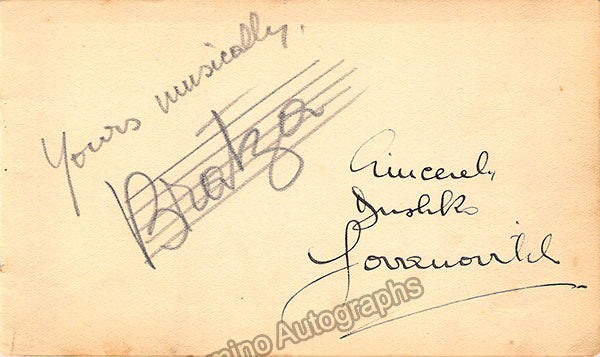 Yours musically,
Bratza
Sincerely
Dushko
Yovanovitch
mino Autographs